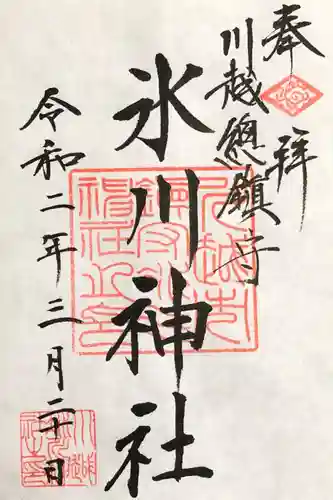 奉拝
川越總鎮守
氷川神社
令和二年三月二十日